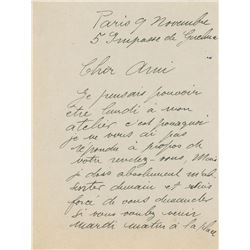 Paris 9 Novembre
5 Impasse de
Cher Ami
Je pensais pouvoir
être lundi à mon
atelier c'est pourquoi
je ne vous ai pas
répondu à propos de
votre rendez-vous. Mais
je dois absolument
demain et suis
forcé de vous demander
si vous voulez venir
mardi matin à la place